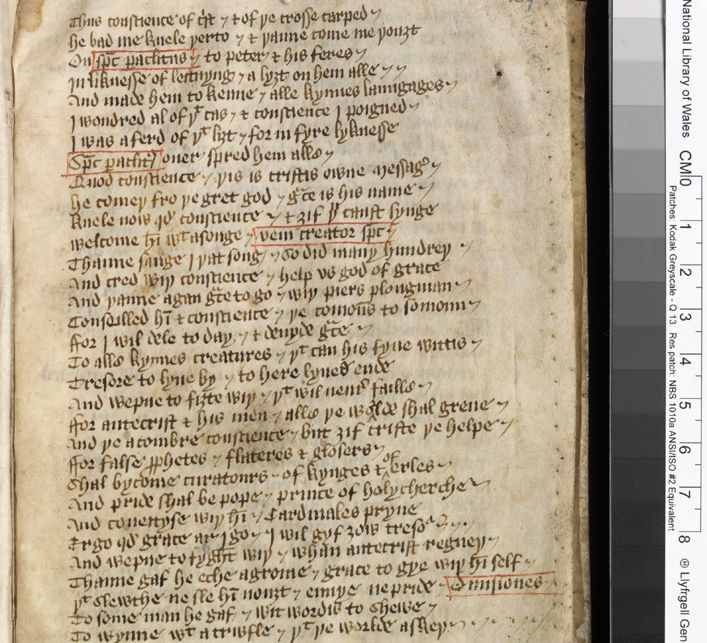 Thus conscience of cͥst ⁊ & of þe crosse carped ⁊
He bad me knele þerto ⁊ & þanne come me þouȝt
On spc paclitus ⁊ to peter & his feres ⁊
In liknesse of leityng ⁊ a lyȝt on hem alle ⁊ ⁊
And made hem to kenne ⁊ alle kynnes langages ⁊
I wondred al of þͭ cas ⁊ & conscience I poigned ⁊
I was aferd of þͭ liȝt ⁊ for in fyre lyknesse
Spc paclitꝰ ouer spred hem alle ⁊
Quod conscience ⁊ þis is cristis owne messagͬ ⁊
He comeþ fro þe gret god ⁊ gͣce is his name ⁊
Knele now qd conscience ⁊ & ȝif þͧ canst synge
welcome hī wͭ a songe ⁊ veni creator spc ⁊
Thanne sange I þat song ⁊ so did many hundreþ ⁊
And cred wiþ conscience ⁊ help vs god of grace
And þanne agan gͣce to go ⁊ wiþ piers plougman ⁊
Conseilled hī & conscience ⁊ þe comoūs to somoun ⁊
For I wil dele to day ⁊ & deuyde gͣce ⁊
To alle kynnes creatures ⁊ þͭ can his fyue wittis ⁊
Tresore to lyue by ⁊ to here lyueˢ ende
And wepne to fiȝte wiþ ⁊ þͭ wil neuͬ faille ⁊
For antecrist & his men ⁊ alle þe worlde shal greue ⁊
And þe acombre conscience ⁊ but ȝif criste þe helpe ⁊
For false ꝓphetes ⁊ flateres & glosers ⁊
Shal bycome curatours ⁊ of kynges & of erles ⁊
And pride shal be pope ⁊ prince of holycherche ⁊
And coueityse wiþ hī ⁊ Cardinales pryue
Ergo qd grace ar I go ⁊ I wil gyf ȝow tresoͬ ⁊ ⁊
And wepne to fyght wiþ ⁊ whan antecrist regneþ ⁊
Thanne gaf he eche a grome ⁊ grace to gye wiþ hī self ⁊
þͭ slewthe ne sle hī nouȝt ⁊ enuye ne pride ⁊ Diuisiones ⁊
To some man he gaf ⁊ wit wordis to shewe ⁊
To wynne wͭ a triwþe ⁊ þͭ þe worlde askeþ ⁊
National Library of Wales
CM 0 1 2 3 4 5 6 7 8
Patches: Kodak Greyscale - Q 13 Res patch: NBS 1010a ANSI/ISO #2 Equivalent
® Llyfrgell Gen